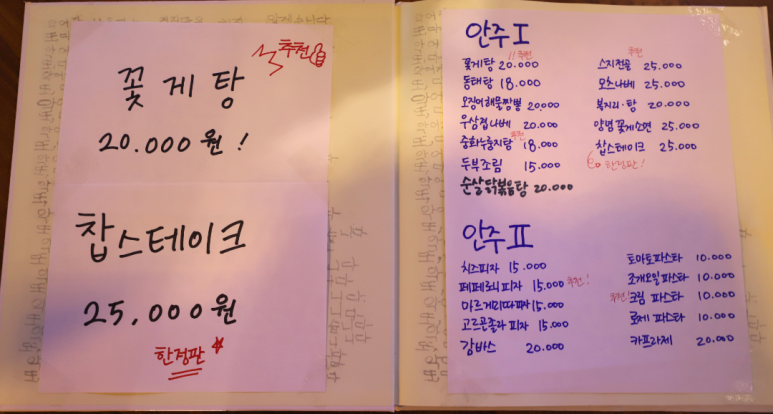 추천
꽃게탕
20.000원!
찹스테이크
25,000원
한정판
안주 I
추천
꽃게탕 20.000
동태탕 18.000
오징어해물짬뽕 20.000
우삼겹나베 20.000
추천
중화누룽지탕 18.000
두부조림 15.000
순살닭볶음탕 20.000
추천
스지전골 25.000
모츠나베 25.000
복지리·탕 20.000
양념꽃게소면 25.000
찹스테이크 25.000
한정판!
안주 II
치즈피자 15.000
페페로니피자 15.000 추천!
마르게리따피자 15.000
고르곤졸라피자 15.000
감바스 20.000
토마토파스타 10.000
조개오일파스타 10.000
추천! 크림파스타 10.000
로제파스타 10.000
카프라제 20.000